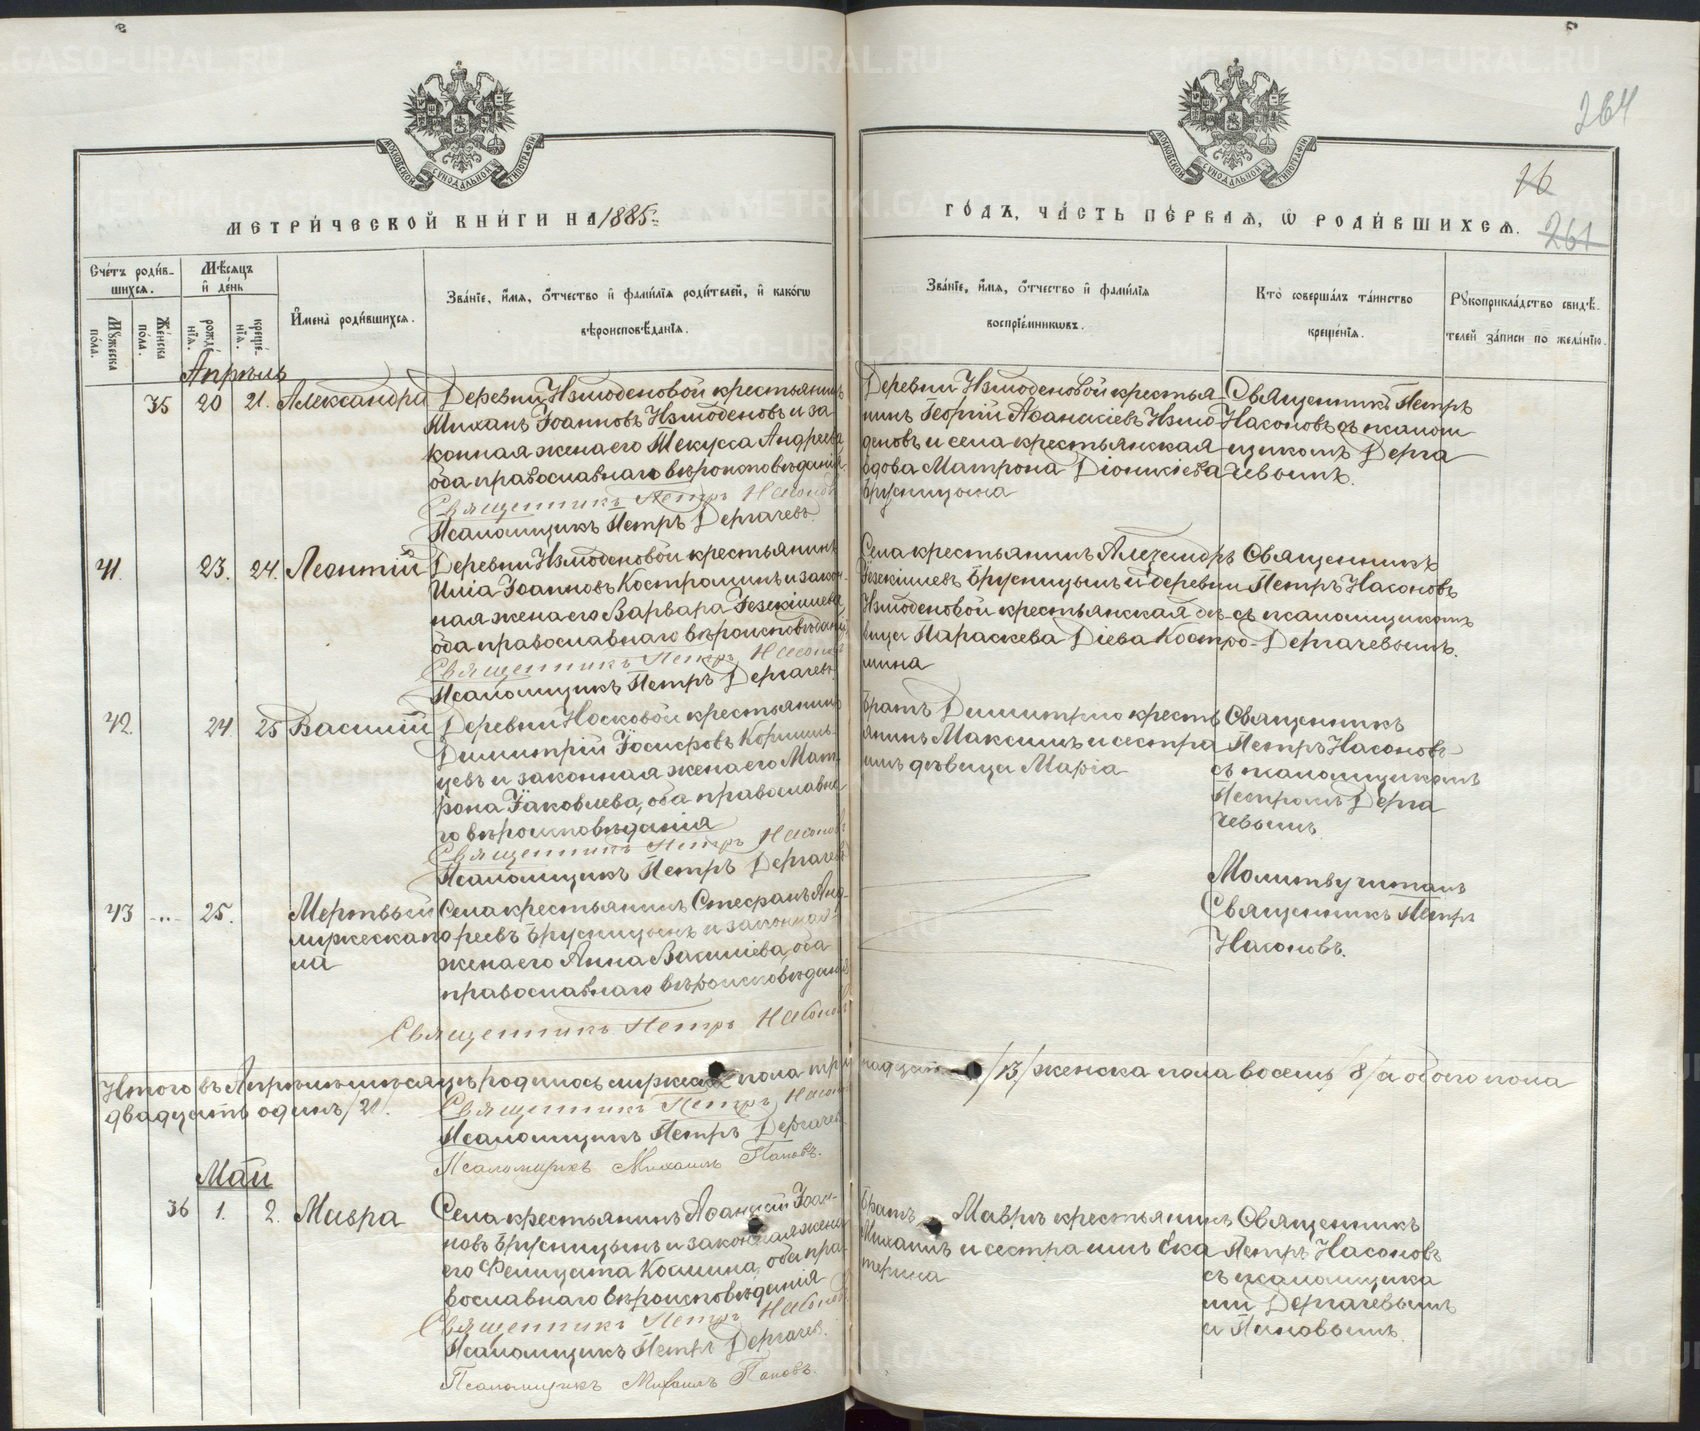 264
16
261
МЕТРИ́ЧЕСКОЙ КНИ́ГИ НА 1885.
ГО́ДЪ, ЧА́СТЬ ПЕ́РВАѦ, Ѡ РОДИ́ВШИХСѦ.
Сче́тъ роди́в-
шихсѧ.
Мѣ́сѧцъ
и҆ де́нь
И҆мена̀ роди́вшихсѧ.
Зва́нїе, и҆́мѧ, ѻ҆́тчество и҆ фами́лїѧ роди́телей, и҆ како́гѡ
вѣроисповѣ́данїѧ.
Зва́нїе, и҆́мѧ, ѻ҆́тчество и҆ фами́лїѧ
воспрїе́мникѡвъ.
Кто̀ соверша́лъ та́инство
креще́нїѧ.
Рꙋкоприкла́дство свидѣ́-
телей за́писи по жела́нїю.
Мꙋ́жеска
по́ла.
Же́нска
по́ла.
рожде́
нїѧ.
креще́-
нїѧ.
Апрѣль
35 20 21. Александра
Деревни Измоденовой крестьянинъ
Михаилъ Іоанновъ Измоденовъ и за
конная жена его Текусса Андреева
оба православнаго вѣроисповѣданія.
Священникъ Петръ Насоновъ
Псаломщикъ Петръ Дергачевъ.
Деревни Измоденовой крестья
нинъ Георгій Аѳанасіевъ Измо
деновъ и села крестьянская
вдова Матрона Діонисіева
Брусницына
Священникъ Петръ
Насоновъ съ псалом
щикомъ Дерга
чевымъ.
41. 23. 24. Леонтій
Деревни Измоденовой крестьянинъ
Илія Іоанновъ Костроминъ и закон-
ная жена его Варвара Іезекіилева
оба православнаго вѣроисповѣданія,
Священникъ Петръ Насоновъ
Псаломщикъ Петръ Дергачевъ
Села крестьянинъ Александръ
Іезекіилевъ Брусницынъ и деревни
Измоденовой крестьянская дѣ-
вица Параскева Діева Костро-
мина
Священникъ
Петръ Насоновъ
съ псаломщикомъ
Дергачевымъ.
42. 24 25 Василій
Деревни Носковой крестьянинъ
Димитрій Іосифовъ Кориль-
цевъ и законная жена его Мат
рона Іаковлева, оба православна
го вѣроисповѣданія
Священникъ Петръ Насоновъ
Псаломщикъ Петръ Дергачевъ
Братъ Димитрію кресть
янинъ Максимъ и сестра
имъ дѣвица Марія
Священникъ
Петръ Насоновъ
съ псаломщикомъ
Петромъ Дерга
чевымъ.
43 -..- 25. Мертвый
мужеска по
ла
Села крестьянинъ Стефанъ Анд-
реевъ Брусницынъ и законная
жена его Анна Василіева, оба
православнаго вѣроисповѣданія
Священникъ Петръ Насоновъ
Молитву читалъ
Священникъ Петръ
Насоновъ.
Итого въ Апрѣлѣ мѣсяцѣ родилось мужеска пола три надцать /13/ женска пола восемь /8/ а обоего пола
двадцать одинъ /21/.
Священникъ Петръ Насоновъ
Псаломщикъ Петръ Дергачевъ
Псаломщикъ Михаилъ Поповъ.
Май
36 1. 2. Мавра
Села крестьянинъ Аѳанасій Іоан-
новъ Брусницынъ и законная жена
его Фелицата Космина, оба пра-
вославнаго вѣроисповѣданія
Священникъ Петръ Насоновъ
Псаломщикъ Петръ Дергачев.
Псаломщикъ Михаилъ Поповъ.
Братъ Маврѣ крестьянинъ
Михаилъ и сестра имъ Ека
терина
Священникъ
Петръ Насоновъ
съ псаломщика
ми Дергачевымъ
и Поповымъ.